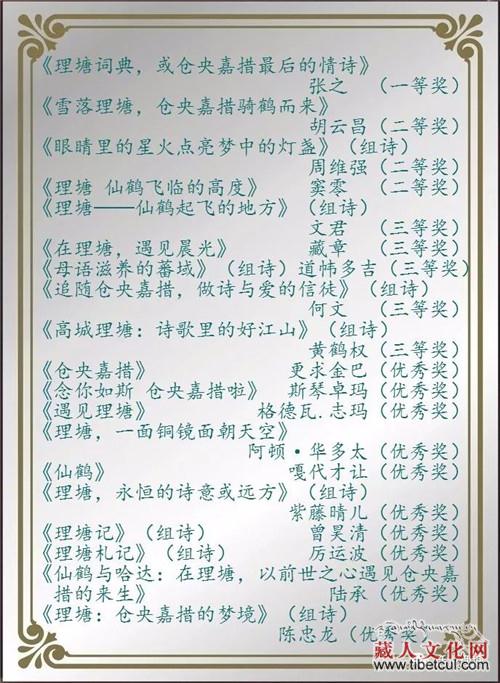 《理塘词典，或仓央嘉措最后的情诗》
张之 （一等奖）
《雪落理塘，仓央嘉措骑鹤而来》
胡云昌（二等奖）
《眼睛里的星火点亮梦中的灯盏》（组诗）
周维强（二等奖）
《理塘 仙鹤飞临的高度》 窦零 （二等奖）
《理塘——仙鹤起飞的地方》（组诗）
文君 （三等奖）
《在理塘，遇见晨光》 藏章 （三等奖）
《母语滋养的蕃域》（组诗）道帏多吉（三等奖）
《追随仓央嘉措，做诗与爱的信徒》（组诗）
何文 （三等奖）
《高城理塘：诗歌里的好江山》（组诗）
黄鹤权（三等奖）
《仓央嘉措》 更求金巴（优秀奖）
《念你如斯 仓央嘉措啦》 斯琴卓玛（优秀奖）
《遇见理塘》 格德瓦.志玛（优秀奖）
《理塘，一面铜镜面朝天空》
阿顿·华多太（优秀奖）
《仙鹤》 嘎代才让（优秀奖）
《理塘，永恒的诗意或远方》（组诗）
紫藤晴儿（优秀奖）
《理塘记》（组诗） 曾昊清（优秀奖）
《理塘札记》（组诗） 厉运波（优秀奖）
《仙鹤与哈达：在理塘，以前世之心遇见仓央嘉
措的来生》 陆承（优秀奖）
《理塘：仓央嘉措的梦境》（组诗）
陈忠龙（优秀奖）
藏人文化网
www.tibetcul.com